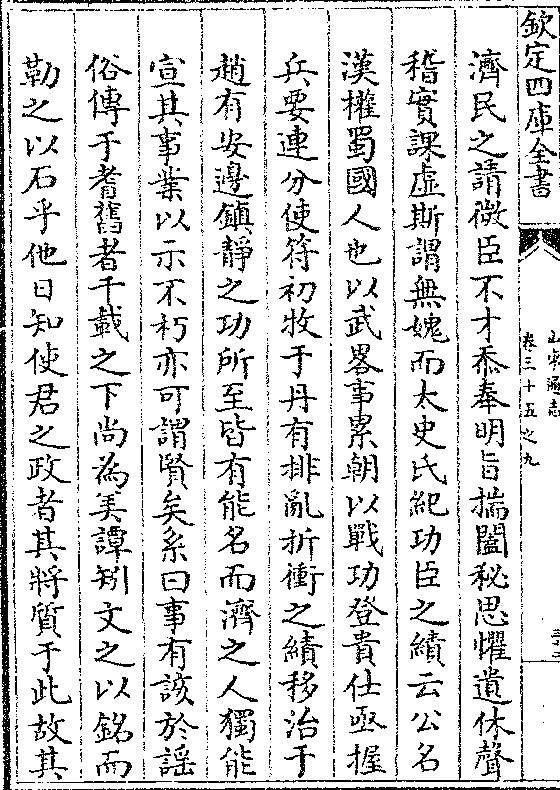 欽定四庫全書
山東通志
卷三十五之九
濟民之請微臣不才忝奉明旨揣闔秘思懼遺休聲
稽實課虛斯謂無媿而太史氏紀功臣之績云公名
漢權蜀國人也以武畧事累朝以戰功登貴仕亟握
兵要連分使符初牧于丹有排亂折衝之績移治于
趙有安邊鎮靜之功所至皆有能名而濟之人獨能
宣其事業以示不朽亦可謂賢矣系曰事有該於謡
俗傳于耆舊者千載之下尚為美譚矧文之以銘而
勒之以石乎他日知使君之政者其將質于此故其